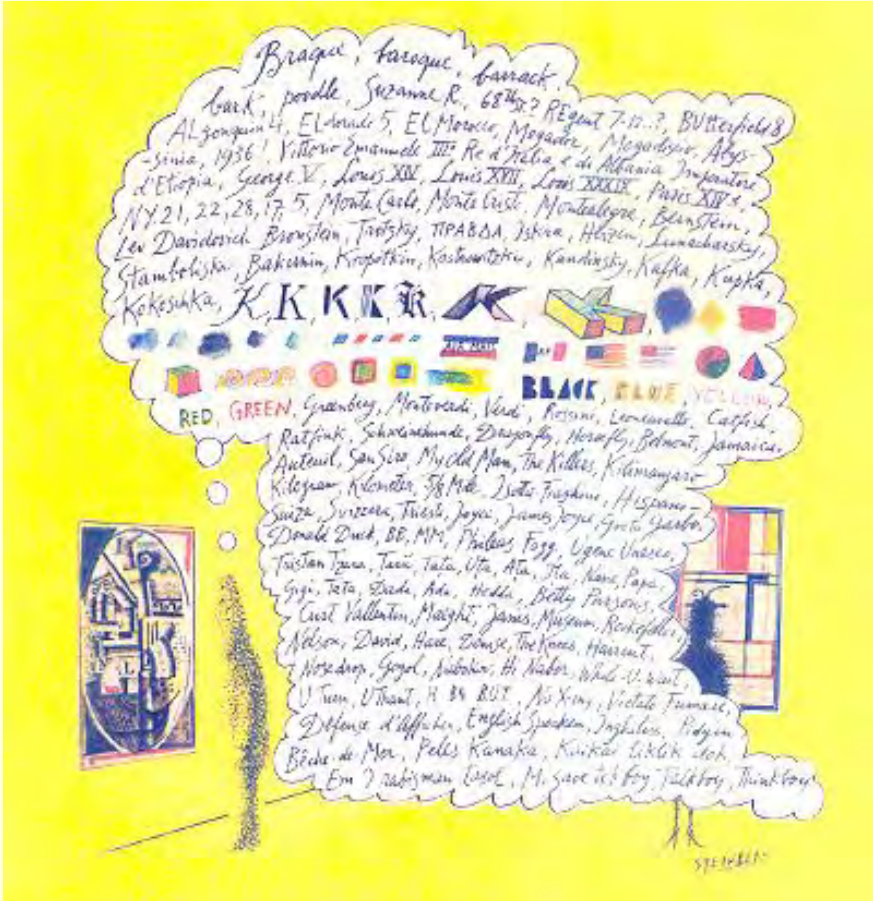 Braque, baroque, barrack,
bark, poodle, Suzanne R., 68th St? REgent 7-12..?, BUtterfield 8
ALgonquin 4, ELdorado 5, EL Morocco, Mogador, Mogadiscio, Abys-
-sinia, 1936! Vittorio Emanuele III° Re d'Italia e di Albania Imperatore
d'Etiopia, George V, Louis XIV, Louis XVII, Louis XXXIX, Paris XIVe,
NY 21, 22, 28, 17, 5, Monte Carlo, Monte Cristo, Montealegre, Bernstein,
Lev Davidovich Bronstein, Trotzky, ПРАВДА, Iskra, Herzen, Lunacharsky,
Stambolisky, Bakunin, Kropotkin, Kostrowitzky, Kandinsky, Kafka, Kupka,
Kokoschka, K, K, K, K, K, K
AIR MAIL
BLACK, BLUE, YELLOW,
RED, GREEN, Greenberg, Monteverdi, Verdi, Rossini, Leoncavallo, Catfish,
Ratfink, Schweinehunde, Dragonfly, Horsefly, Belmont, Jamaica,
Auteuil, San Siro, My Old Man, The Killers, Kilimanjaro
Kilogram, Kilometer, 5/8 Mile, Isotta Fraschini, Hispano-
Suiza, Svizzera, Trieste, Joyce, James Joyce, Greta Garbo,
Donald Duck, BB, MM, Phileas Fogg, Ugene Unesco,
Tristan Tzara, Tata, Uta, Ata, Ita, Papa,
Gigi, Tata, Dada, Ada, Hedda, Betty Parsons,
Curt Valentin, Maeght, Janis, Museum, Rockefeller
Nelson, David, Hare, The Knees,
Nosedrop, Gogol, Hi Nabor, While-U-wait,
U Turn, U Thant, No X-ing, Vietato Fumare,
Défense d'Afficher, English Spoken, Pidgin
Bêche-de-Mer, Kanaka, liklik
Talkboy, Thinkboy
STEINBERG